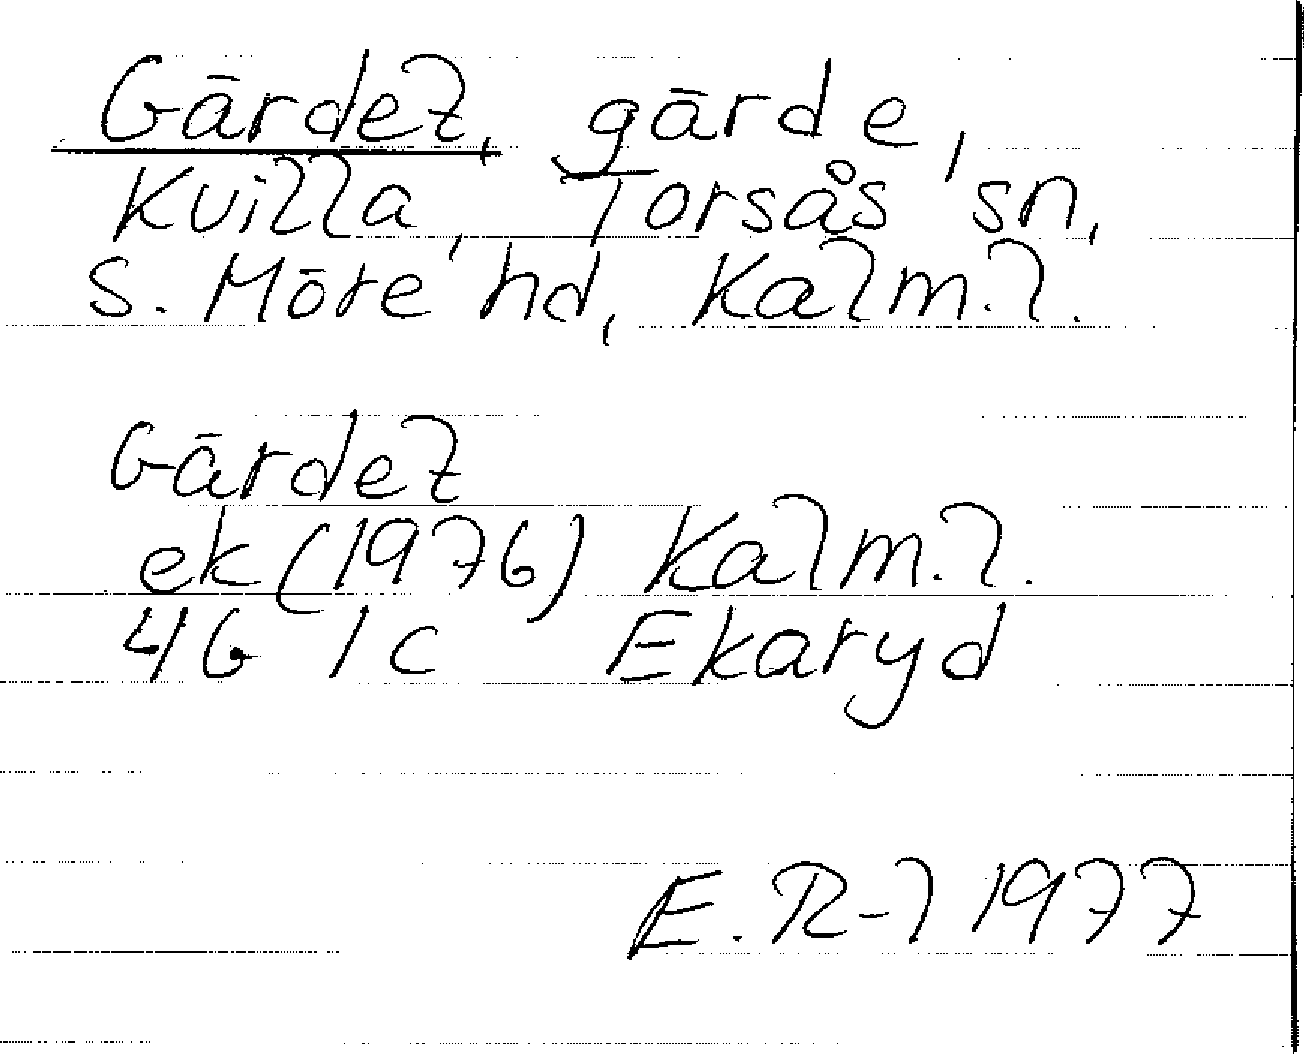 Gärdet, gärde,
Kvilla, Torsås sn,
S. Möre hd, Kalm.l.
Gärdet
ek (1976) Kalm.l.
4G 1c Ekaryd
E.R-l 1977